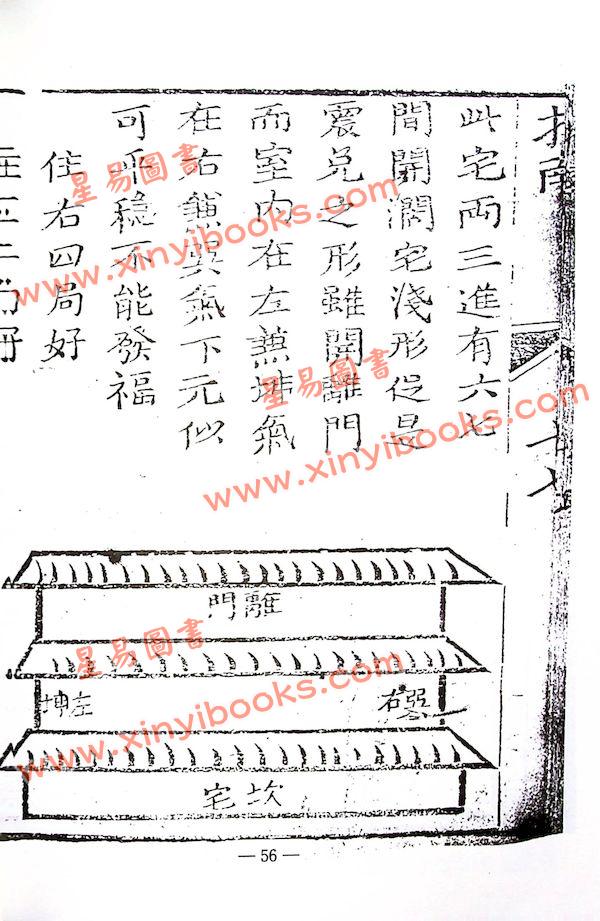 指南
此宅兩三進有六七
間開濶宅淺形促是
震兌之形雖開離門
而室内在左兼坤氣
在右兼巽氣下元似
可平穩不能發福
住右四局好
離門
左坤
右巽
坎宅
— 56 —
星易圖書
www.xinyibooks.com
星易圖書
www.xinyibooks.com
星易圖書
www.xinyibooks.com